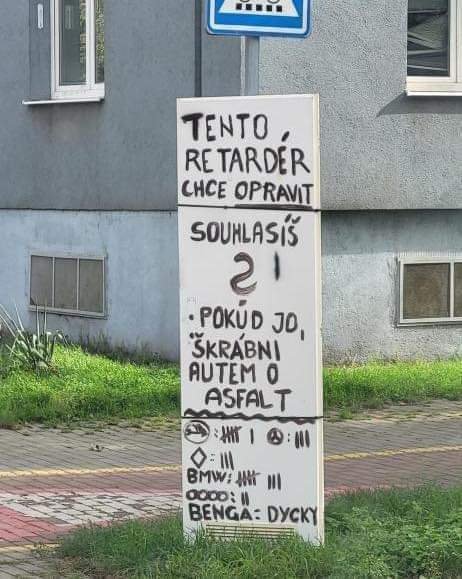 TENTO
RETARDÉR
CHCE OPRAVIT
SOUHLASÍŠ
?
• POKÚD JO,
ŠKRÁBNI
AUTEM O
ASFALT
: |||| | : |||
◇: |||
BMW: |||| ||
OOOO: ||
BENGA: DYCKY